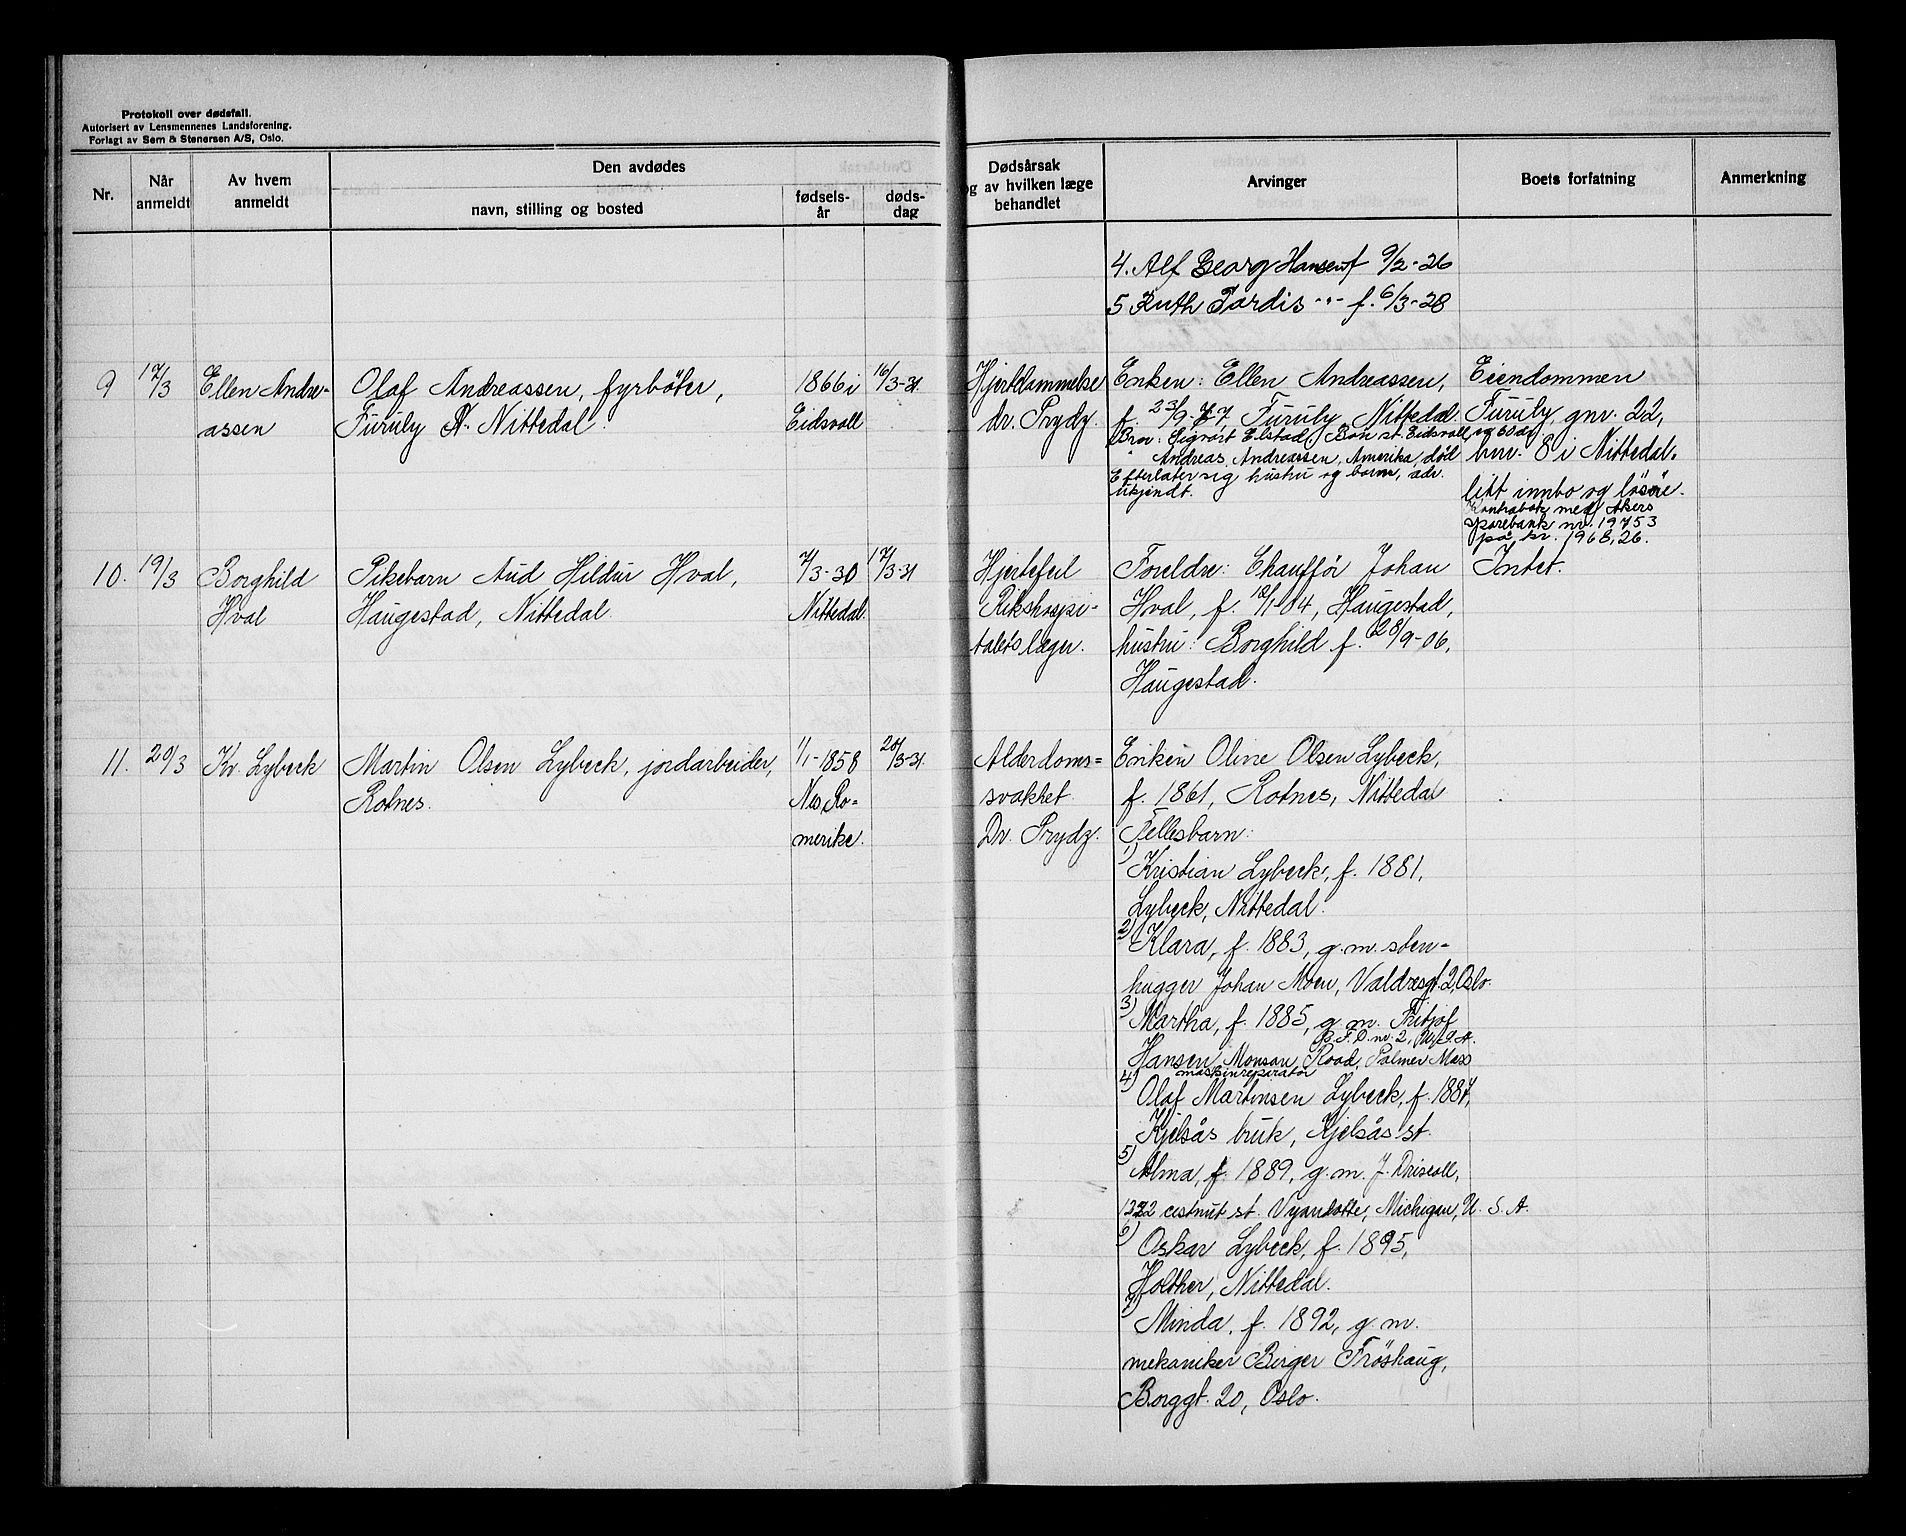 Protokoll over dødsfall.
Autorisert av Lensmennenes Landsforening.
Forlagt av Sem & Stenersen A/S, Oslo.
Nr.
Når anmeldt
Av hvem anmeldt
Den avdødes
navn, stilling og bosted
fødsels-
år
døds-
dag
Dødsårsak
og av hvilken læge
behandlet
Arvinger
Boets forfatning
Anmerkning
4. Alf Georg Hansen f 9/2-26
5 Ruth Tordis -"- f. 6/3-28
9
17/3
Ellen Andre-
assen
Olaf Andreassen, fyrbøter,
Furuly Nittedal
1866 i
Eidsvoll
16/3-31.
Hjertelammelse
dr. Prydz.
Enken: Ellen Andreassen,
f. 23/9- Furuly, Nittedal
Bror: Sigvart Elstad, Bøn st. Eidsvoll, ca 60 år
" Andreas Andreassen, Amerika, død
Efterlater sig hustru og barn, adr.
ukjendt.
Eiendommen
Furuly gnr. 22,
bnr. 8 i Nittedal.
litt innbo og løsøre.
Kontrabok med Akers
sparebank nr. 19753
på kr. 1968,26.
10.
19/3
Borghild
Hval
Pikebarn Aud Hildur Hval,
Haugestad, Nittedal.
7/3-30
Nittedal.
17/3-31
Hjertefeil
Rikshospi-
talets læger.
Foreldre: Chauffør Johan
Hval, f. 18/1-04, Haugestad,
hustru: Borghild f. 28/9-06,
Haugestad.
Intet.
11.
29/3
Kr. Lybeck
Martin Olsen Lybeck, jordarbeider,
Rotnes.
1/1-1858
Nes Ro-
merike.
28/3-31.
Alderdoms=
svakhet.
Dr. Prydz.
Enken Oline Olsen Lybeck,
f. 1861, Rotnes, Nittedal
Fellesbarn:
1) Kristian Lybeck, f. 1881,
Lybeck, Nittedal.
2) Klara, f. 1883, g.m. sten-
hugger Johan Moen, Valdresgt. 2, Oslo.
3) Martha, f. 1885, g.m. Fritjof
R.F.D. nr. 2, U.S.A.
Hansen, Monson Road, Palmer Mass
maskinreparatør
4) Olaf Martinsen Lybeck, f. 1887,
Kjelsås bruk, Kjelsås st.
5) Alma, f. 1889, g.m. J. Driscoll,
1322 cestnut st. Vyandotte, Michigan, U.S.A.
6) Oskar Lybeck, f. 1895,
Holther, Nittedal.
7) Minda, f. 1892, g.m.
mekaniker Birger Frøshaug,
Borggt. 20, Oslo.